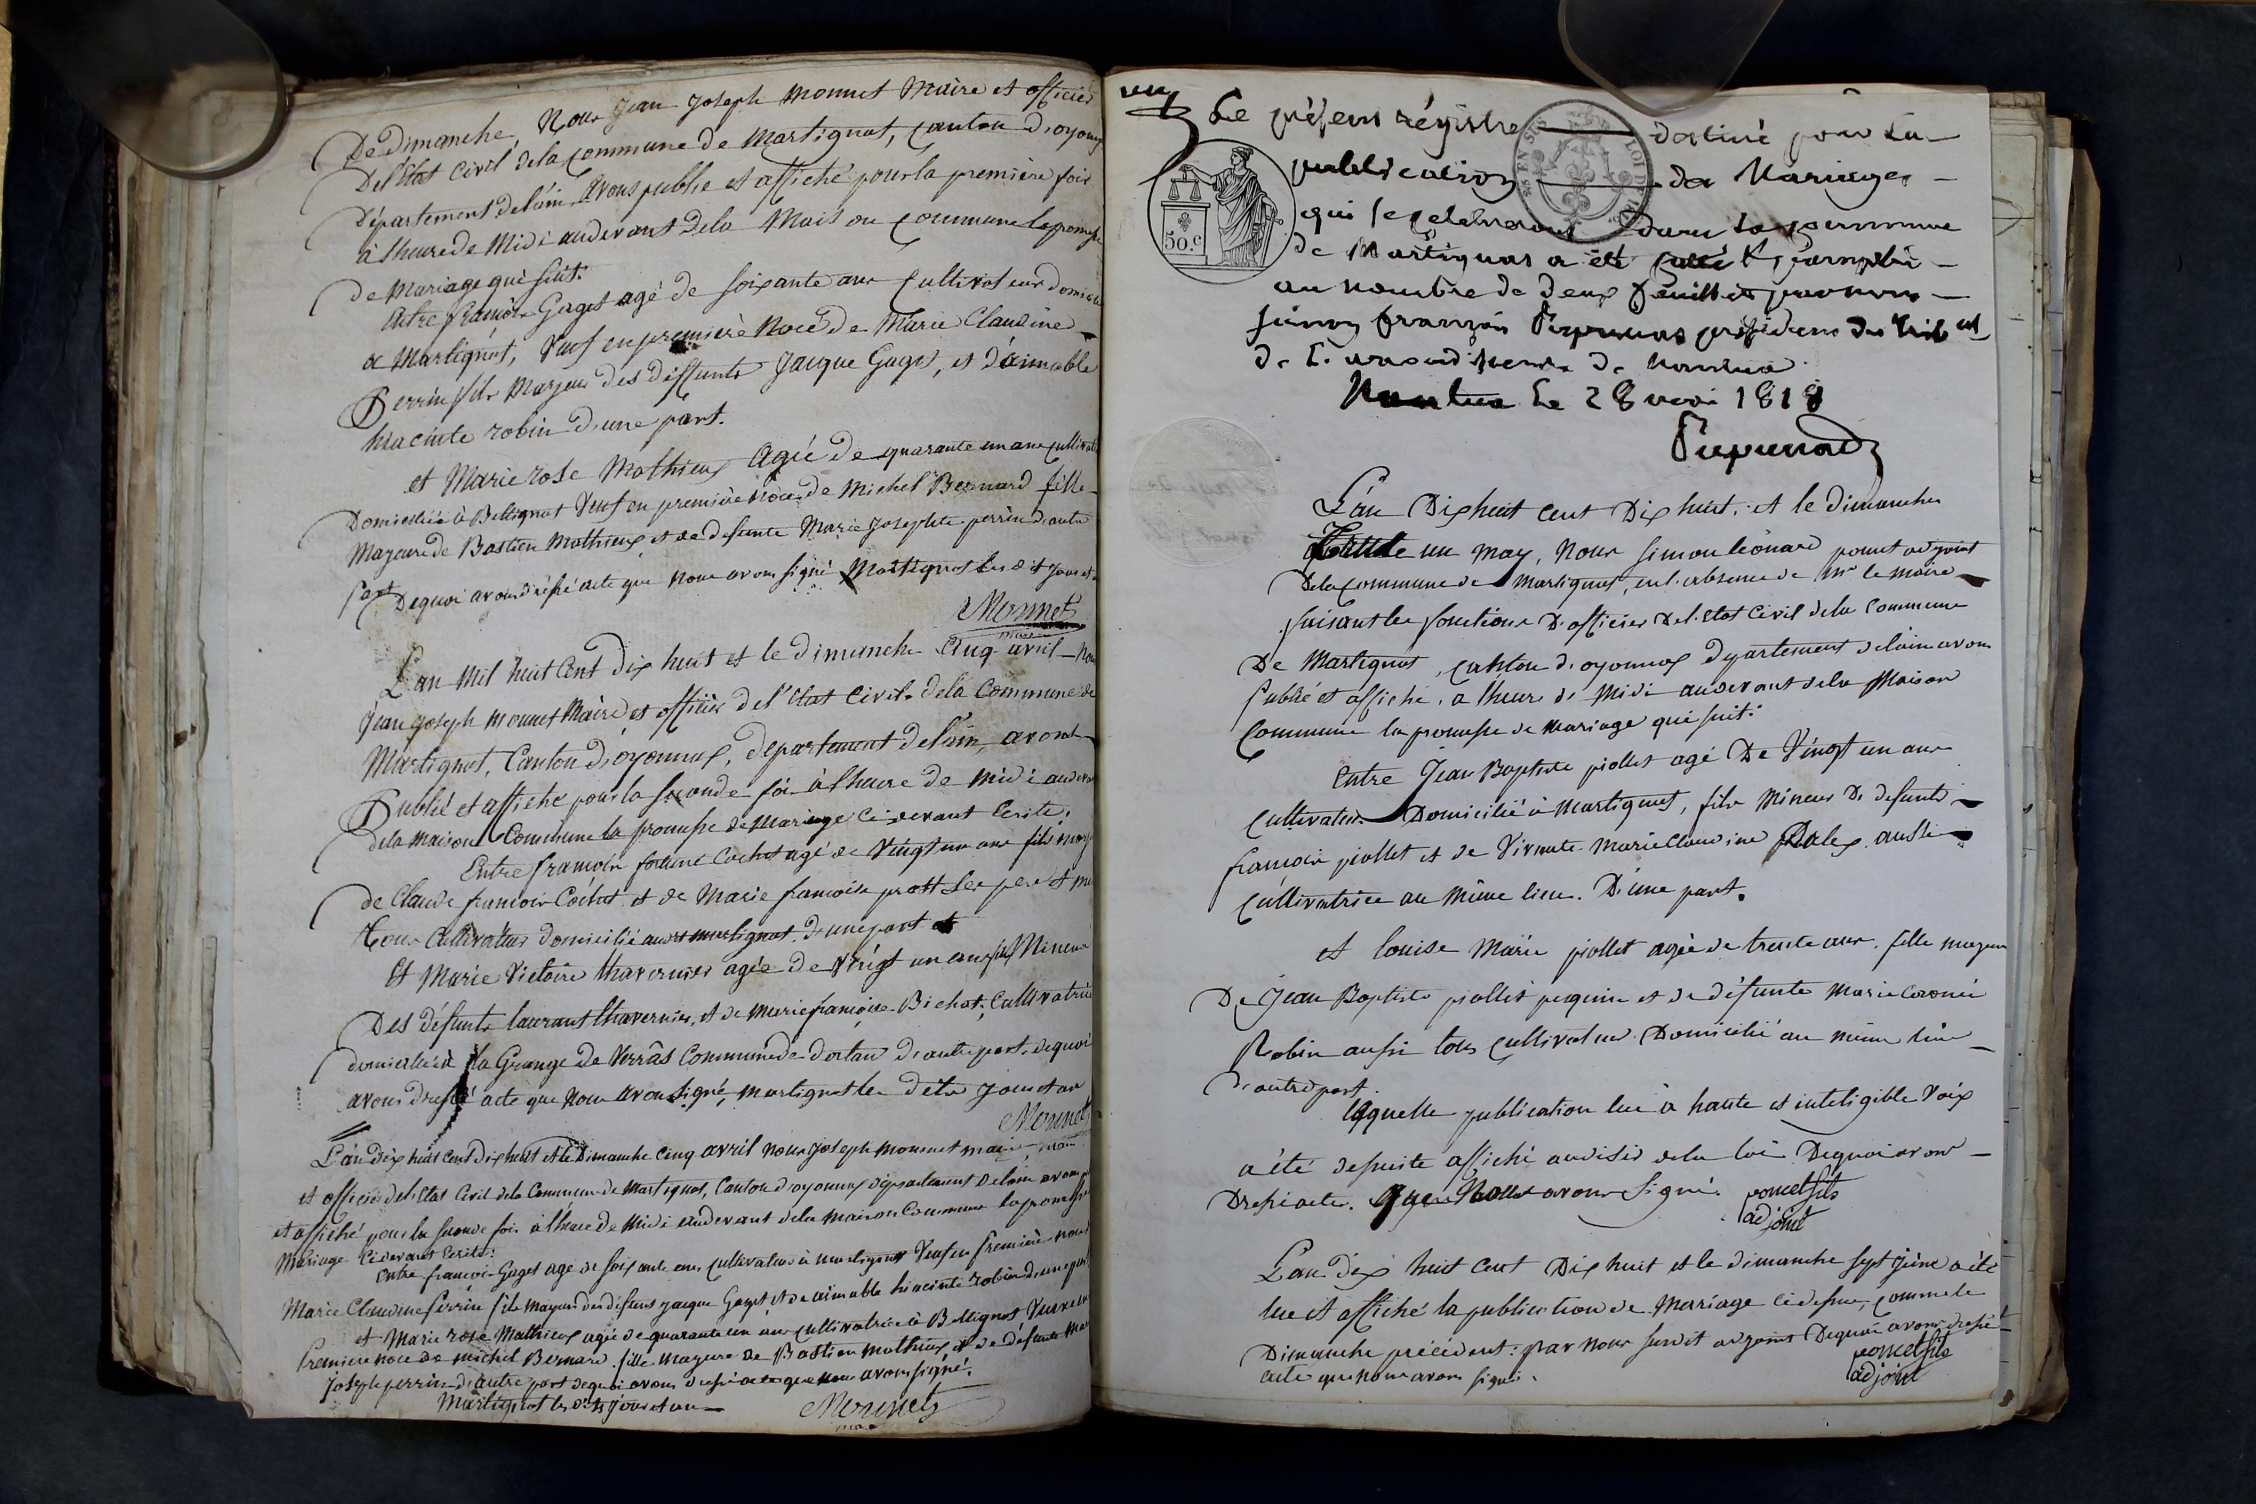 De Dimanche, Nous Jean Joseph Monnet Maire et officier
Del'Etat Civil dela Commune de Martignat, Canton d'oyonnax
Département delain avons publie et affiché pour la première fois
à lheure de Midi audevant Dela Maison Commune la promesse
de Mariage qui suit:
Entre françois Gaget agé de soixante ans Cultivateur domicilié
a Martignat, Veuf en première Noce de Marie Claudine
Perrin fils Majeur des deffunts Jacque Gaget, et d'aimable
hiacinte robin d'une part.
et Marie rose Mathieux Agée de quarante un ans Cultivat
Domiciliée à Bellignat Veuf en première noce de Michel Bernard fille
Majeure de Bastien Mathieux, et de defunte Marie Josephte perrin d'autre
Part Dequoi avons dressé acte que Nous avons signé Martignat les dit Jour et
Monnet
maire
L'an Mil huit Cent dix huit et le dimanche Cinq avril Nous
Jean Joseph Monnet Maire et officier del'Etat Civil dela Commune de
Martignat, Canton d'oyonnax, département delain avons
Publié et affiché pour la seconde foi à lheure de Midi audevant
dela maison Commune la promesse de Mariage ci devant Ecrite:
Entre françois Cochet agé de Vingt un ans fils
de Claude françois Cochet et de Marie françoise prost Les pere et
Tous Cultivateurs domicilié d'une part
Et Marie Victoire thavernier agée de Vingt un ans Mineure
Des défunts laurant thavernier, et de Marie françoise Bichat Cultivatrice
domiciliée à la Grange de Verrâs Commune de dortan d'autre part dequoi
avons dressé acte que Nous avons signé, Martignat les dits Jour et an
Monnet
L'an dix huit cent dix huit et le Dimanche cinq avril Nous Joseph Monnet maire
et officier del'Etat Civil dela Commune de Martignat, Canton d'oyonnax département delain avons
et affiché pour la seconde fois à lheure de Midi audevant dela maison Commune la promesse
Mariage Cidevant Ecrite:
Entre françois Gaget agé de soixante ans Cultivateur à Martignat Veuf en première noce
Marie Claudine Perrin fils majeur des défunts Jacque Gaget et de aimable hiacinte robin d'une part
et Marie rose Mathieux agée de quarante un ans Cultivatrice à Bellignat Veuve
Première noce de Michel Bernard fille Mageure de Bastien Mathieux et de défunte
Joseph perrin d'autre part dequoi avons dressé acte que Nous avons signé.
Martignat les dits Jour et an
Monnet
Le présent régistre destiné pour la
publication des Mariages
qui se célébreront dans la commune
de Martignat a été
au nombre de deux feuillets par nous
françois président du
de l'arrondissement de Nantua
Nantua le 28 1818
50.c
L'an Dixhuit Cent Dix huit, et le dimanche
trente un may, Nous simon léonard poncet adjoint
Dela Commune de Martignat, en l'absence de Mr le Maire
faisant les fonctions D'officier Del'Etat Civil dela Commune
De Martignat, Canton d'oyonnax département delain avons
Publié et affiché, a lheure de Midi audevant dela Maison
Commune la promesse de Mariage qui suit:
Entre Jean Baptiste piollet agé De Vingt un ans
Cultivateur Domicilié à Martignat, fils Mineur De defunt
françois piollet et de Vivante Marie Claudine aussi
Cultivatrice au Même lieu. D'une part.
et Louise Marie piollet agée de trente ans, fille mageure
De Jean Baptiste piollet et de défunte Marie
Robin aussi tous Cultivateur Domicilié au même lieu
D'autre part.
laquelle publication lue à haute et inteligible Voix
a été desuite affiché audésir dela loi Dequoi avons
Dressé acte. que Nous avons signé. poncet fils
adjoint
L'an dix huit cent Dix huit et le dimanche sept juin a été
lue et affiché la publication de Mariage cidessus, comme le
Dimanche précédent: par Nous susdit adjoint Dequoi avons dressé
acte que nous avons signé. poncet fils
adjoint